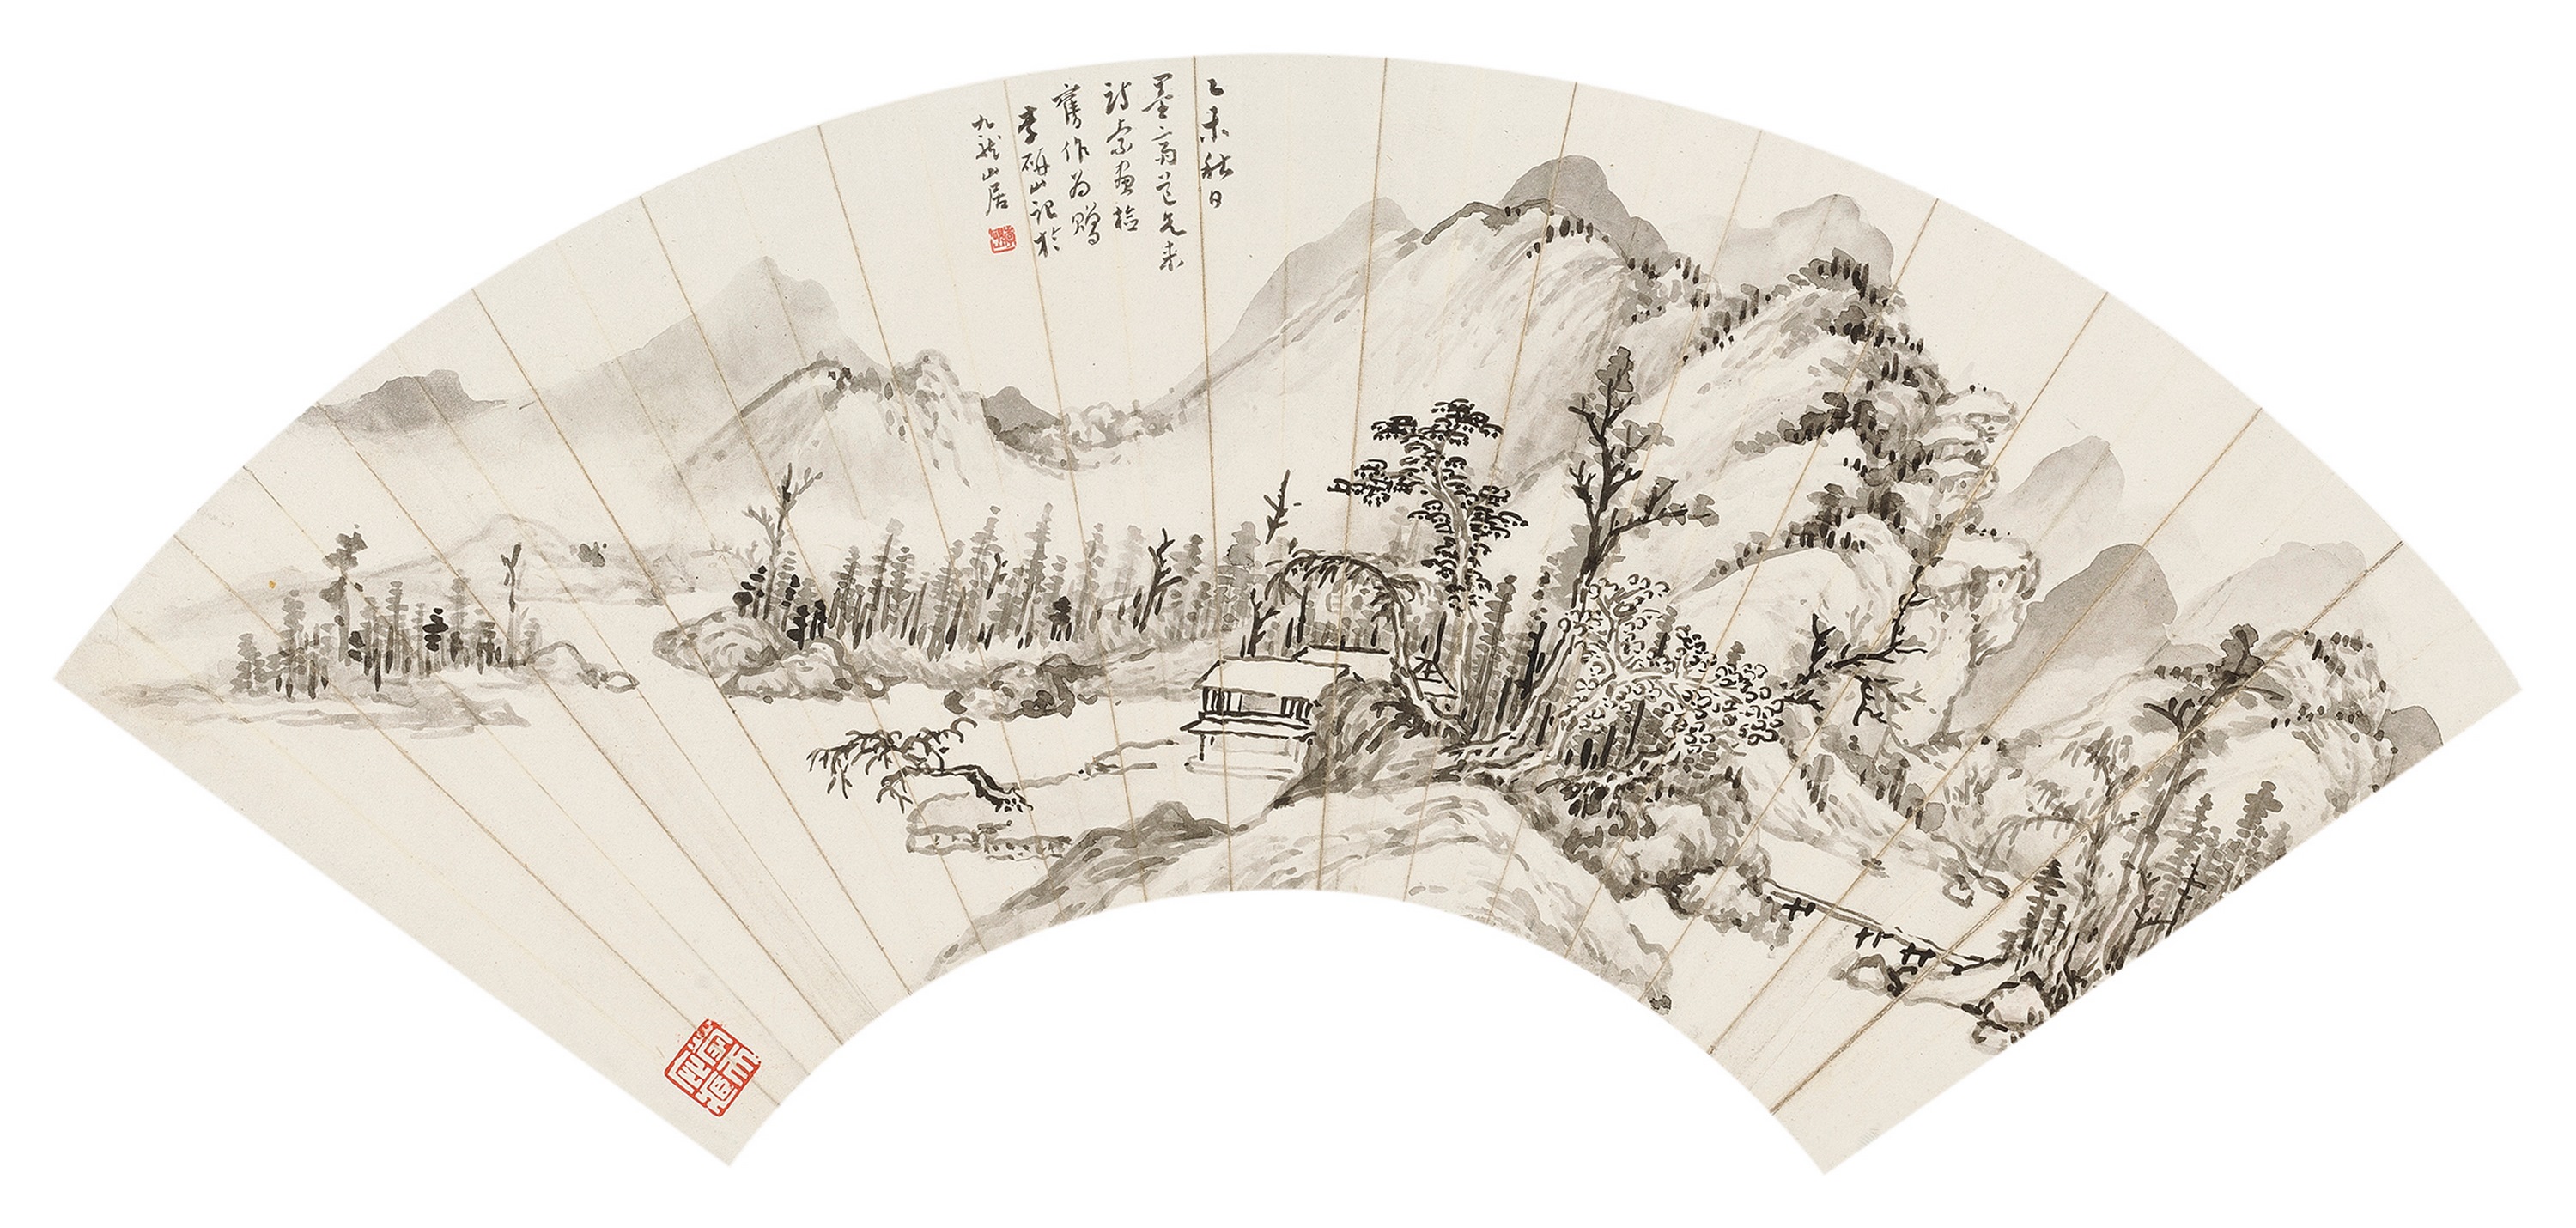 乙未秋日
墨齋道兄来
訪索畫檢
舊作為贈
李研山記於
九龍山居